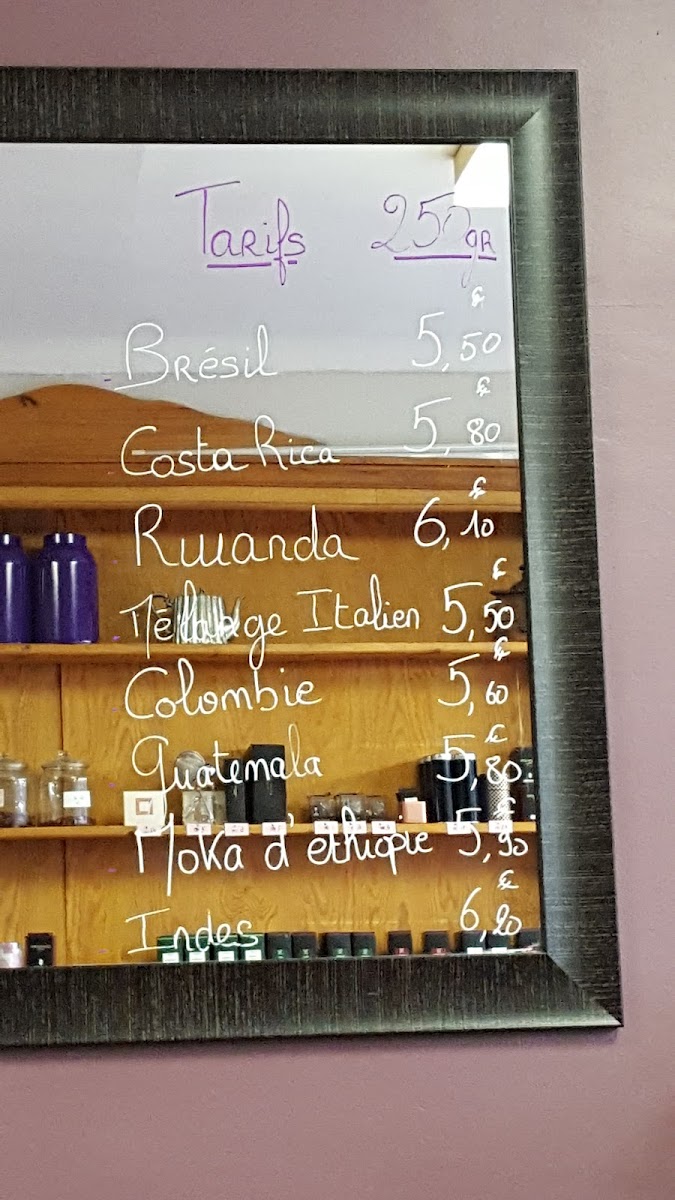 Tarifs 250gr
Brésil 5,50 €
Costa Rica 5,80 €
Rwanda 6,10 €
Mélange Italien 5,50 €
Colombie 5,60 €
Guatemala 5,80 €
Moka d'éthiopie 5,90 €
Indes 6,20 €